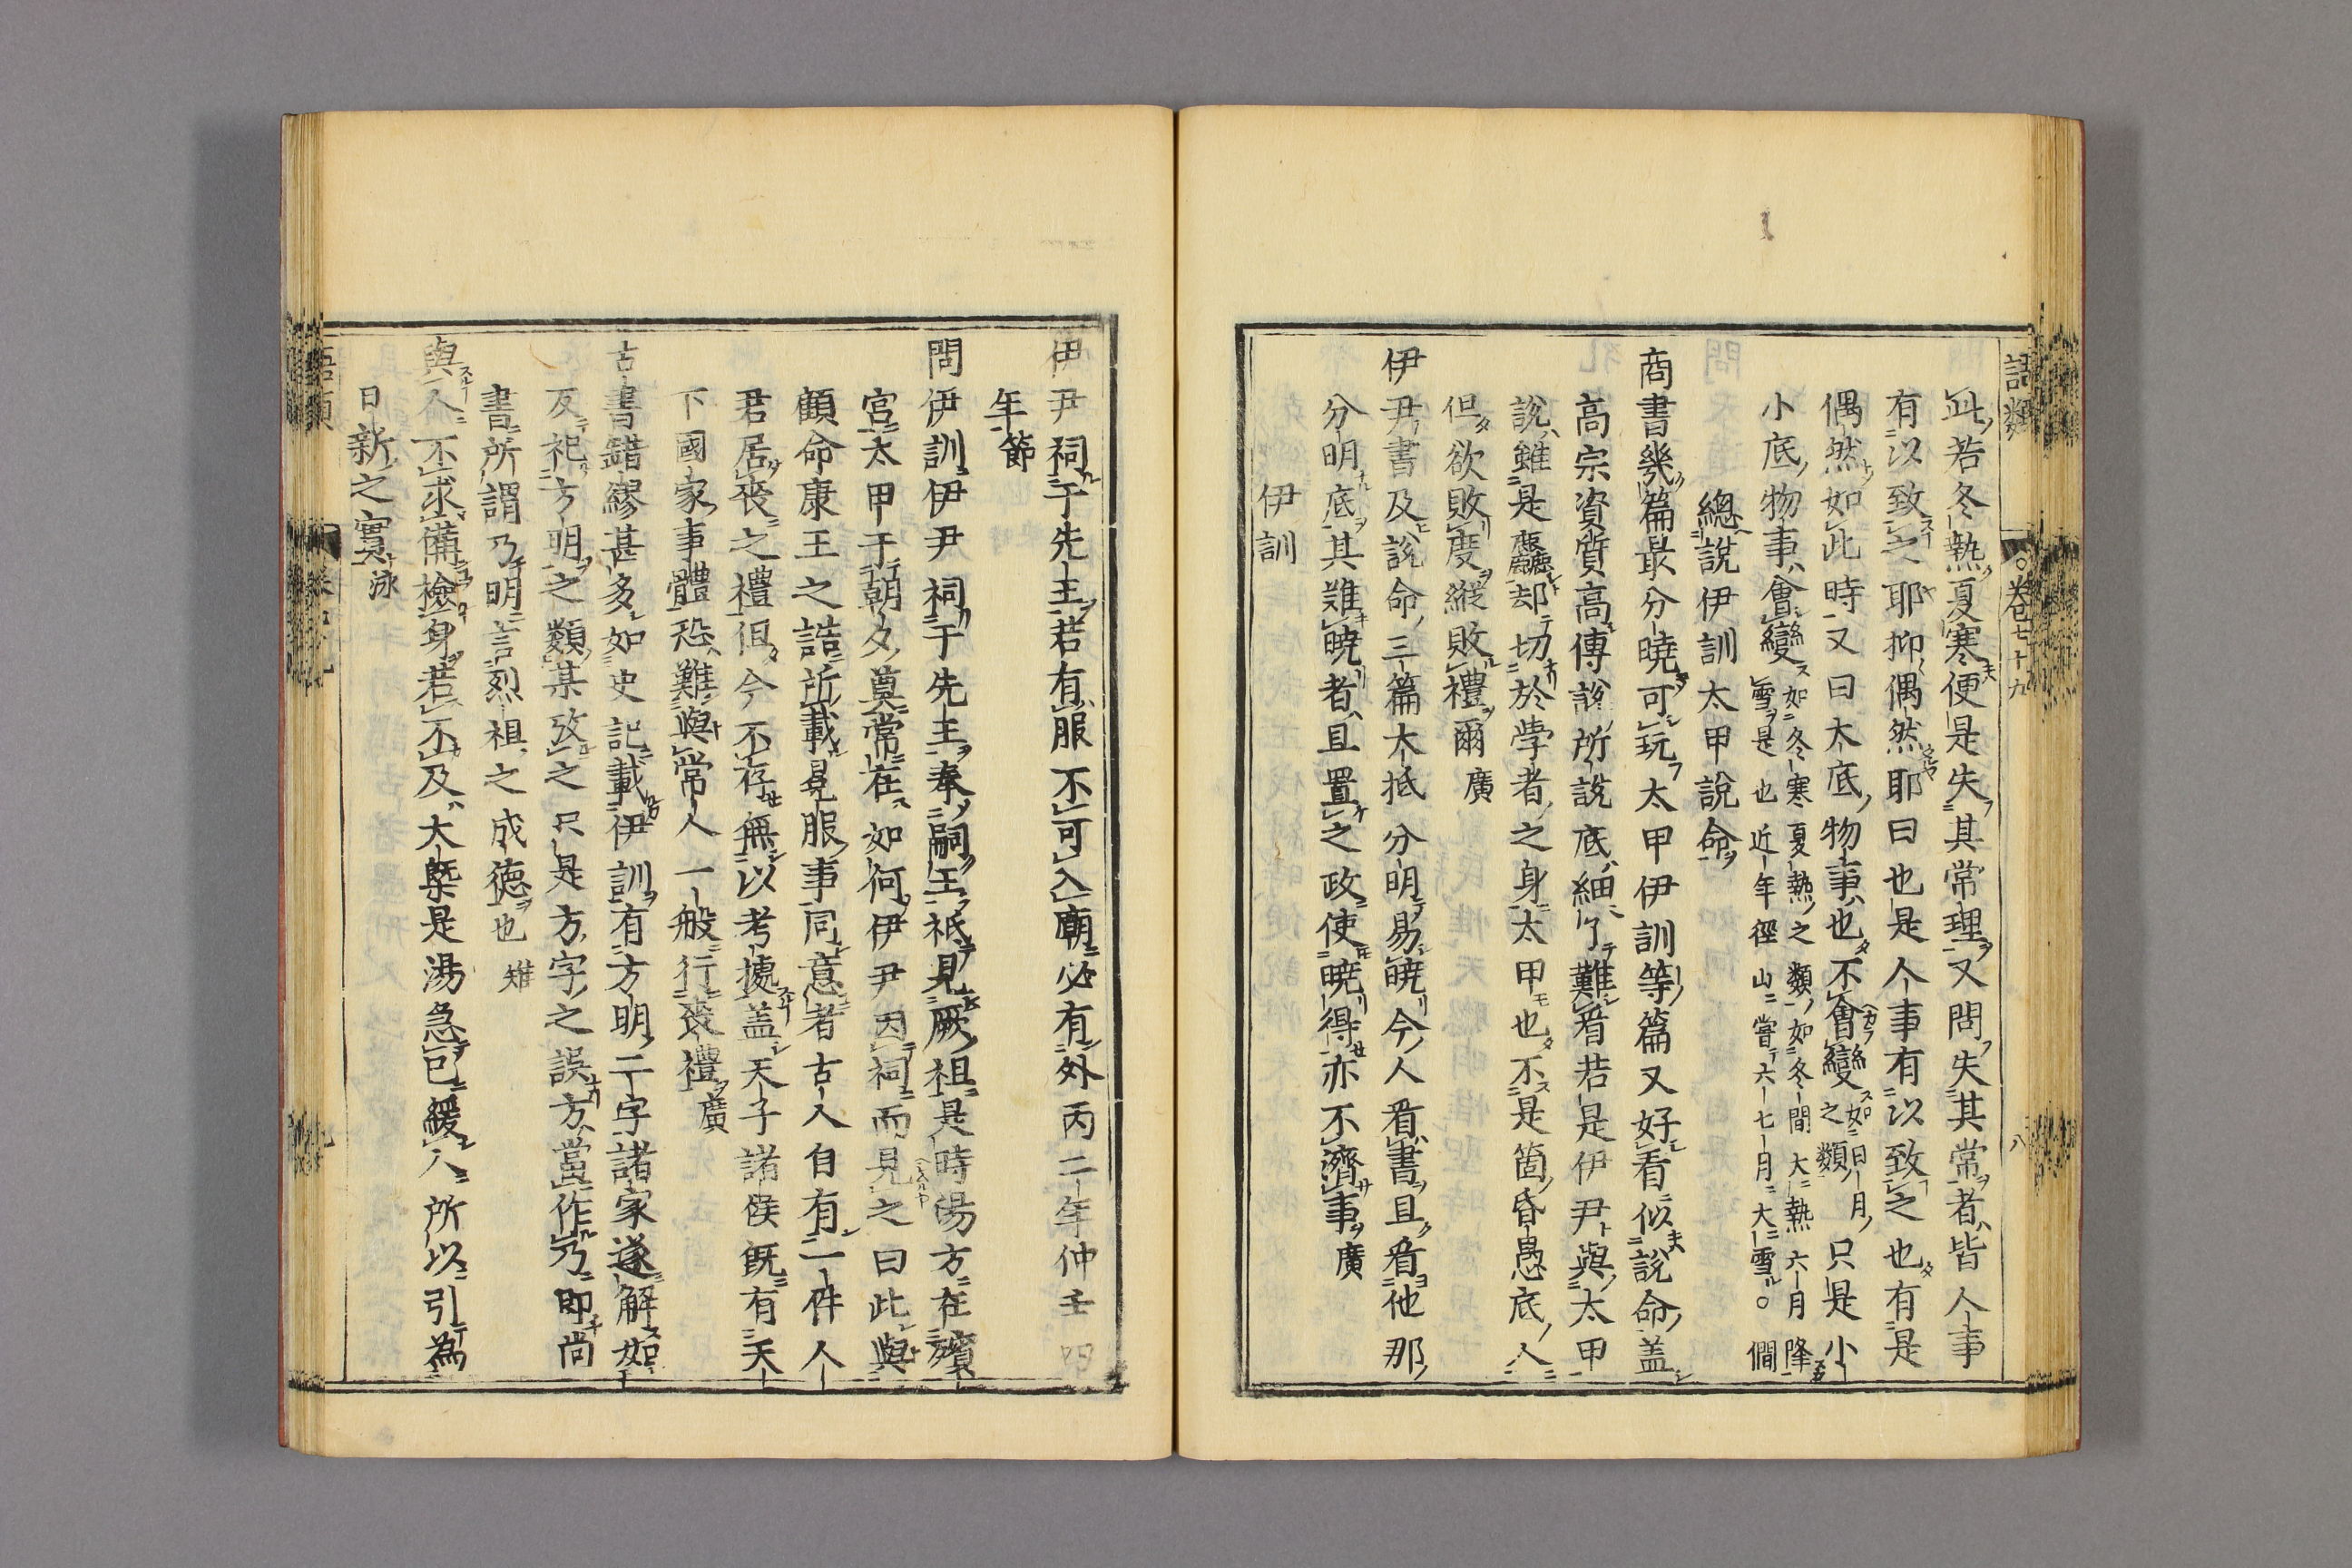 語類 ○卷七十九 八
此若冬熱夏寒便是失其常理又問失其常者皆人事
有以致之耶抑偶然耶曰也是人事有以致之也有是
偶然如此時又曰大底物事也不會變如日月之類只是小
小底物事會變如冬寒夏熱之類如冬間大熱六月降雪是也近年徑山嘗六七月大雪○僩
總說伊訓太甲說命
商書幾篇最分曉可玩太甲伊訓等篇又好看似說命蓋
高宗資質高傅說所說底細了難看若是伊尹與太甲
說雖是麤却切於學者之身太甲也不是箇昏愚底人
但欲敗度縱敗禮爾 廣
伊尹書及說命三篇大抵分明易曉今人看書且看他那
分明底其難曉者且置之政使曉得亦不濟事 廣
伊訓
伊尹祠于先王若有服不可入廟必有外丙二年仲壬四
年 節
問伊訓伊尹祠于先王奉嗣王祗見厥祖是時湯方在殯
宮太甲于朝夕奠常在如何伊尹因祠而見之曰此與
顧命康王之誥近載冕服事同意者古人自有一件人
君居喪之禮但今不存無以考據盖天子諸侯既有天
下國家事體恐難與常人一般行喪禮 廣
古書錯繆甚多如史記載伊訓有方明二字諸家遂解如
反祀方明之類某攷之只是方字之誤方當作乃即尚
書所謂乃明言烈祖之成德也 雉
與人不求備檢身若不及大槩是湯急己緩人所以引為
日新之實 泳